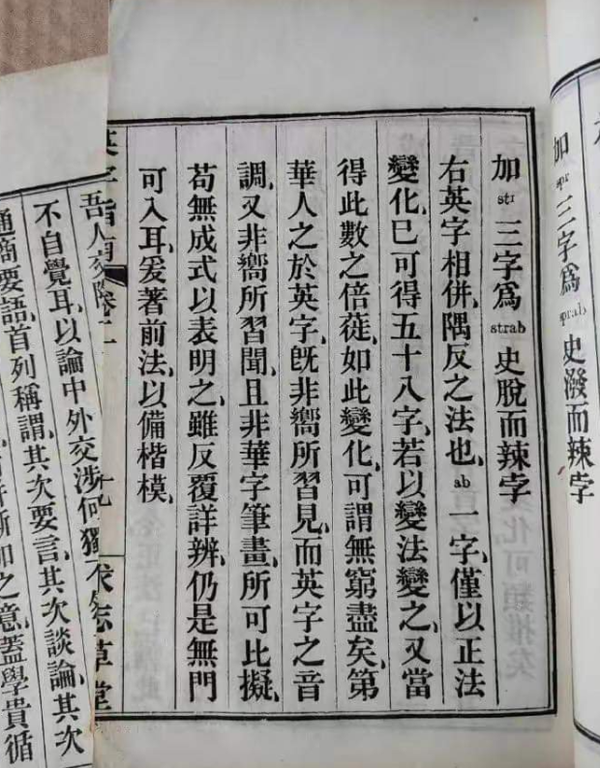 加 spr 三字爲 sprab 史潑而辣孛
加 str 三字爲 strab 史脫而辣孛
右英字相併、隅反之法也、ab 一字、僅以正法
變化、已可得五十八字、若以變法變之、又當
得此數之倍蓰、如此變化、可謂無窮盡矣、第
華人之於英字、旣非嚮所習見、而英字之音
調、又非嚮所習聞、且非華字筆畫、所可比擬、
苟無成式以表明之、雖反覆詳辨、仍是無門
可入耳、爰著前法、以備楷模、
英字指南 求志草堂
吾人交際
不自覺耳、以論中外交涉、何獨
通商要語、首列稱謂、其次要言、其次談論、其次
加之意、蓋學貴循